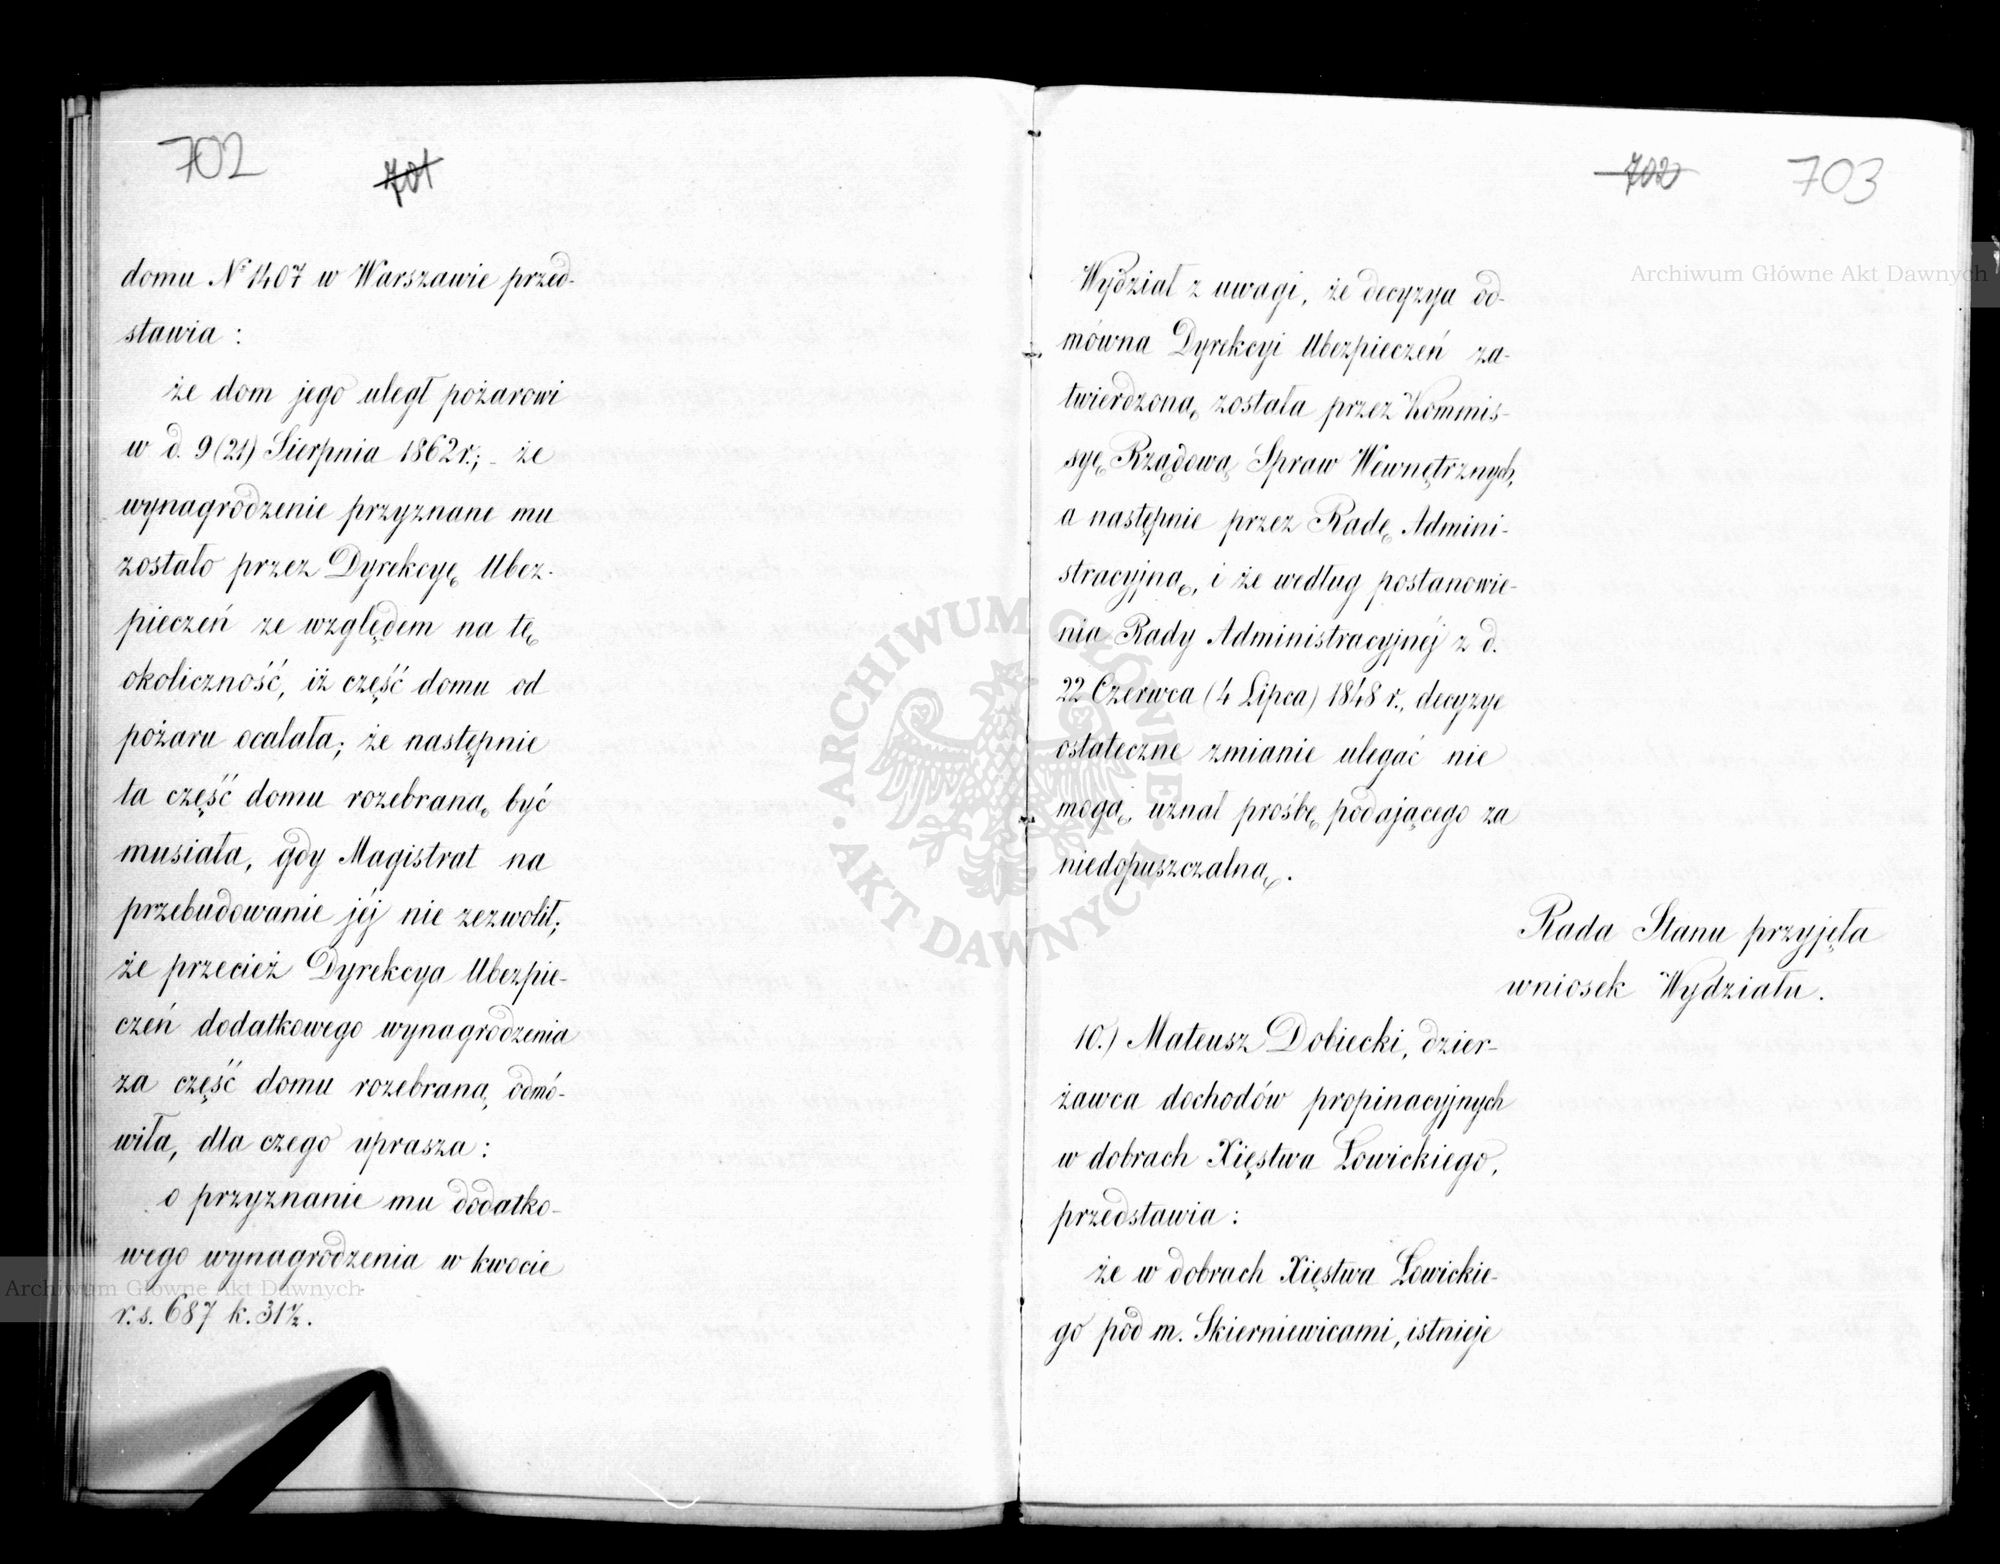 702
701
domu № 1407 w Warszawie przed-
stawia :
że dom jego uległ pożarowi
w d. 9 (21) Sierpnia 1862 r.; – że
wynagrodzenie przyznane mu
zostało przez Dyrekcyę Ubez-
pieczeń ze względem na tę
okoliczność, iż część domu od
pożaru ocalała; że następnie
ta część domu rozebraną być
musiała, gdy Magistrat na
przebudowanie jéj nie zezwolił;
że przecież Dyrekcya Ubezpie-
czeń dodatkowego wynagrodzenia
za część domu rozebraną odmó-
wiła, dla czego uprasza :
o przyznanie mu dodatko-
wego wynagrodzenia w kwocie
r. s. 687 k. 31½.
702
703
Wydział z uwagi, że decyzya od-
mówna Dyrekcyi Ubezpieczeń za-
twierdzoną została przez Kommis-
syę Rządową Spraw Wewnętrznych,
a następnie przez Radę Admini-
stracyjną, i że według postanowie-
nia Rady Administracyjnéj z d.
22 Czerwca (4 Lipca) 1848 r., decyzye
ostateczne zmianie ulegać nie
mogą, uznał prośbę podającego za
niedopuszczalną.
Rada Stanu przyjęła
wniosek Wydziału.
10.) Mateusz Dobiecki, dzier-
żawca dochodów propinacyjnych
w dobrach Xięstwa Łowickiego,
przedstawia :
że w dobrach Xięstwa Łowickie-
go pod m. Skierniewicami, istnieje
Archiwum Główne Akt Dawnych
Archiwum Główne Akt Dawnych
ARCHIWUM GŁÓWNE
AKT DAWNYCH